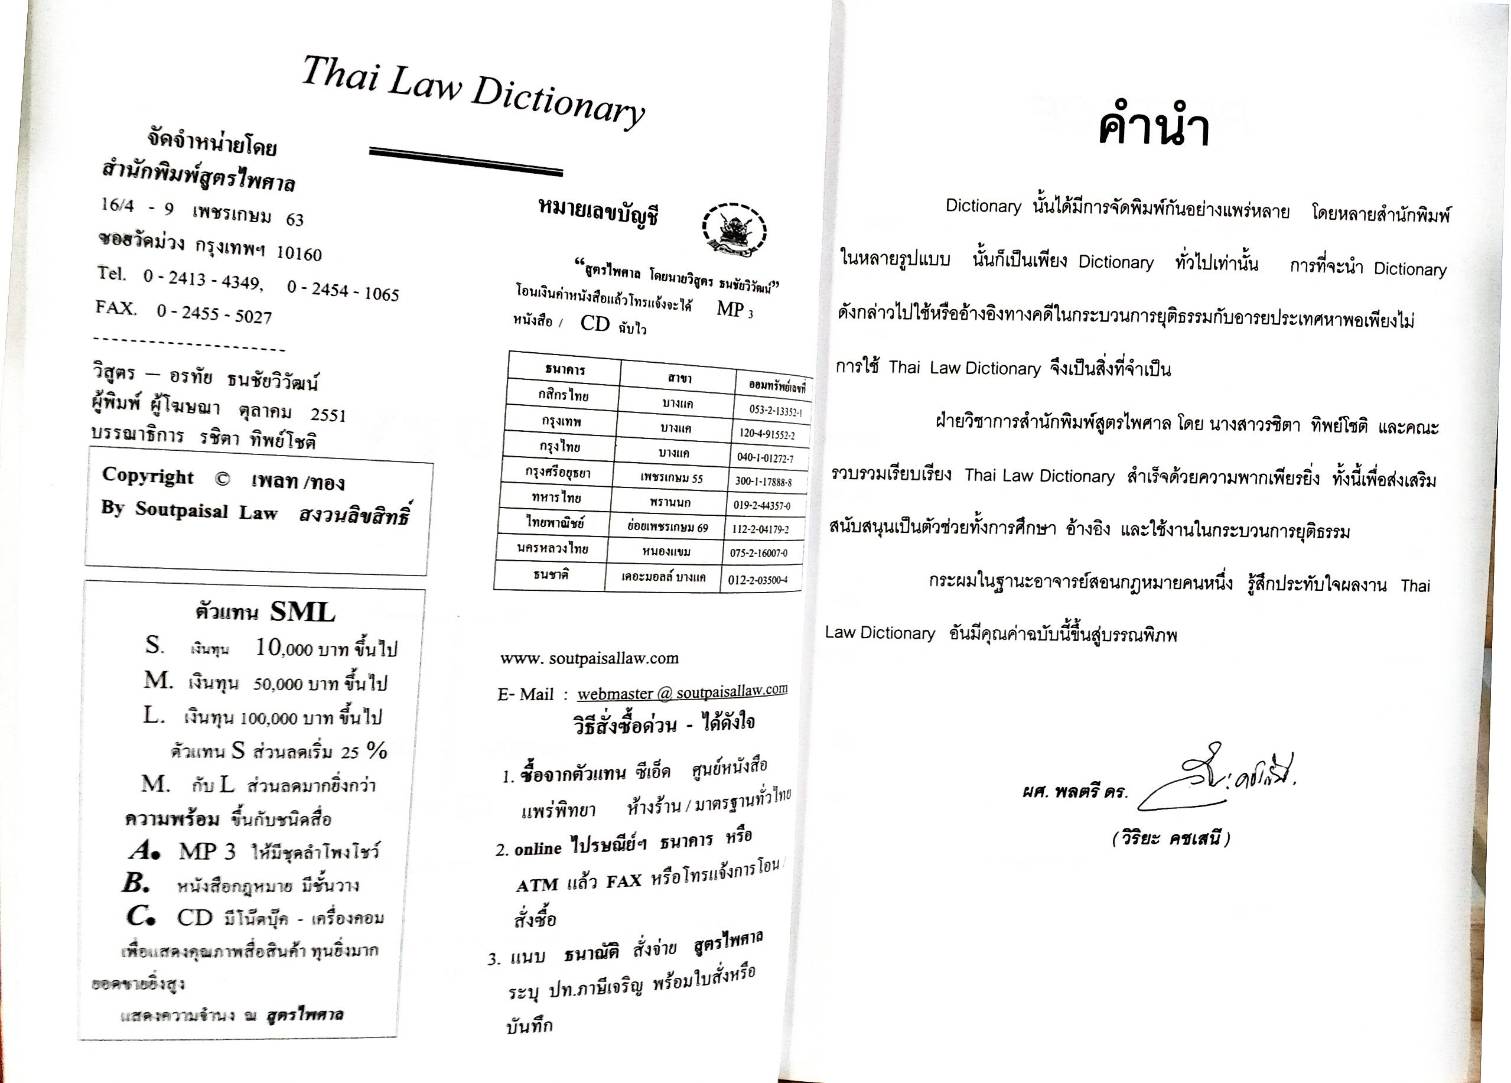 Thai Law Dictionary
จัดจำหน่ายโดย
สำนักพิมพ์สูตรไพศาล
16/4 - 9 เพชรเกษม 63
ซอยวัดม่วง กรุงเทพฯ 10160
Tel. 0 - 2413 - 4349, 0 - 2454 - 1065
FAX. 0 - 2455 - 5027
---------------------
วิสูตร – อรทัย ธนชัยวิวัฒน์
ผู้พิมพ์ ผู้โฆษณา ตุลาคม 2551
บรรณาธิการ รชิตา ทิพย์โชติ
Copyright © เพลท /ทอง
By Soutpaisal Law สงวนลิขสิทธิ์
ตัวแทน SML
S. เงินทุน 10,000 บาท ขึ้นไป
M. เงินทุน 50,000 บาท ขึ้นไป
L. เงินทุน 100,000 บาท ขึ้นไป
ตัวแทน S ส่วนลดเริ่ม 25 %
M. กับ L ส่วนลดมากยิ่งกว่า
ความพร้อม ขึ้นกับชนิดสื่อ
A. MP 3 ให้มีชุดลำโพงโชว์
B. หนังสือกฎหมาย มีชั้นวาง
C. CD มีโน๊ตบุ๊ค - เครื่องคอม
เพื่อแสดงคุณภาพสื่อสินค้า ทุนยิ่งมาก
ยอดขายยิ่งสูง
แสดงความจำนง ณ สูตรไพศาล
หมายเลขบัญชี
“สูตรไพศาล โดยนายวิสูตร ธนชัยวิวัฒน์”
โอนเงินค่าหนังสือแล้วโทรแจ้งจะได้ MP 3
หนังสือ / CD ฉับไว
ธนาคาร สาขา ออมทรัพย์เลขที่
กสิกรไทย บางแค 053-2-13352-1
กรุงเทพ บางแค 120-4-91552-2
กรุงไทย บางแค 040-1-01272-7
กรุงศรีอยุธยา เพชรเกษม 55 300-1-17888-8
ทหารไทย พรานนก 019-2-44357-0
ไทยพาณิชย์ ย่อยเพชรเกษม 69 112-2-04179-2
นครหลวงไทย หนองแขม 075-2-16007-0
ธนชาติ เดอะมอลล์ บางแค 012-2-03500-4
www. soutpaisallaw.com
E- Mail : webmaster @ soutpaisallaw.com
วิธีสั่งซื้อด่วน - ได้ดังใจ
1. ซื้อจากตัวแทน ซีเอ็ด ศูนย์หนังสือ
แพร่พิทยา ห้างร้าน / มาตรฐานทั่วไทย
2. online ไปรษณีย์ฯ ธนาคาร หรือ
ATM แล้ว FAX หรือโทรแจ้งการโอน /
สั่งซื้อ
3. แนบ ธนาณัติ สั่งจ่าย สูตรไพศาล
ระบุ ปท.ภาษีเจริญ พร้อมใบสั่งหรือ
บันทึก
คำนำ
Dictionary นั้นได้มีการจัดพิมพ์กันอย่างแพร่หลาย โดยหลายสำนักพิมพ์
ในหลายรูปแบบ นั้นก็เป็นเพียง Dictionary ทั่วไปเท่านั้น การที่จะนำ Dictionary
ดังกล่าวไปใช้หรืออ้างอิงทางคดีในกระบวนการยุติธรรมกับอารยประเทศหาพอเพียงไม่
การใช้ Thai Law Dictionary จึงเป็นสิ่งที่จำเป็น
ฝ่ายวิชาการสำนักพิมพ์สูตรไพศาล โดย นางสาวรชิตา ทิพย์โชติ และคณะ
รวบรวมเรียบเรียง Thai Law Dictionary สำเร็จด้วยความพากเพียรยิ่ง ทั้งนี้เพื่อส่งเสริม
สนับสนุนเป็นตัวช่วยทั้งการศึกษา อ้างอิง และใช้งานในกระบวนการยุติธรรม
กระผมในฐานะอาจารย์สอนกฎหมายคนหนึ่ง รู้สึกประทับใจผลงาน Thai
Law Dictionary อันมีคุณค่าฉบับนี้ขึ้นสู่บรรณพิภพ
ผศ. พลตรี ดร.
( วิริยะ คชเสนี )